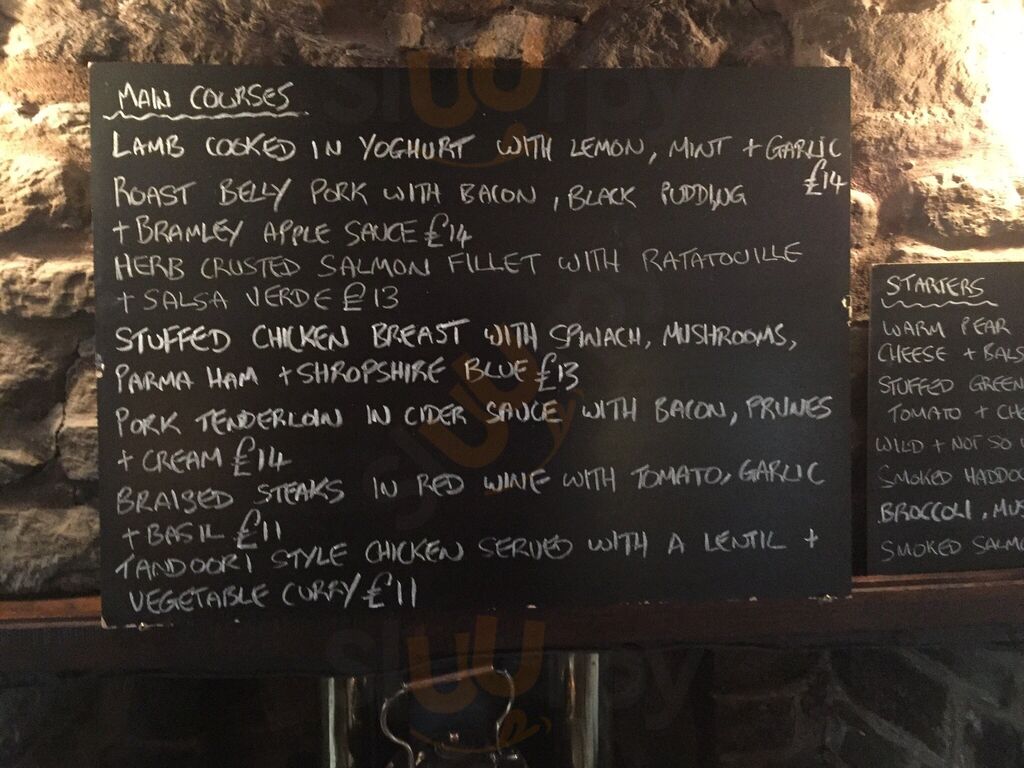 MAIN COURSES
LAMB COOKED IN YOGHURT WITH LEMON, MINT + GARLIC
£14
ROAST BELLY PORK WITH BACON, BLACK PUDDING
+ BRAMLEY APPLE SAUCE £14
HERB CRUSTED SALMON FILLET WITH RATATOUILLE
+ SALSA VERDE £13
STUFFED CHICKEN BREAST WITH SPINACH, MUSHROOMS,
PARMA HAM + SHROPSHIRE BLUE £13
PORK TENDERLOIN IN CIDER SAUCE WITH BACON, PRUNES
+ CREAM £14
BRAISED STEAKS IN RED WINE WITH TOMATO, GARLIC
+ BASIL £11
TANDOORI STYLE CHICKEN SERVED WITH A LENTIL +
VEGETABLE CURRY £11
STARTERS
WARM PEAR
CHEESE + BALS
STUFFED GREEN
TOMATO + CHE
WILD + NOT SO
SMOKED HADDOC
BROCCOLI, MUS
SMOKED SALMO
sluurpy
sluurpy
sluurpy